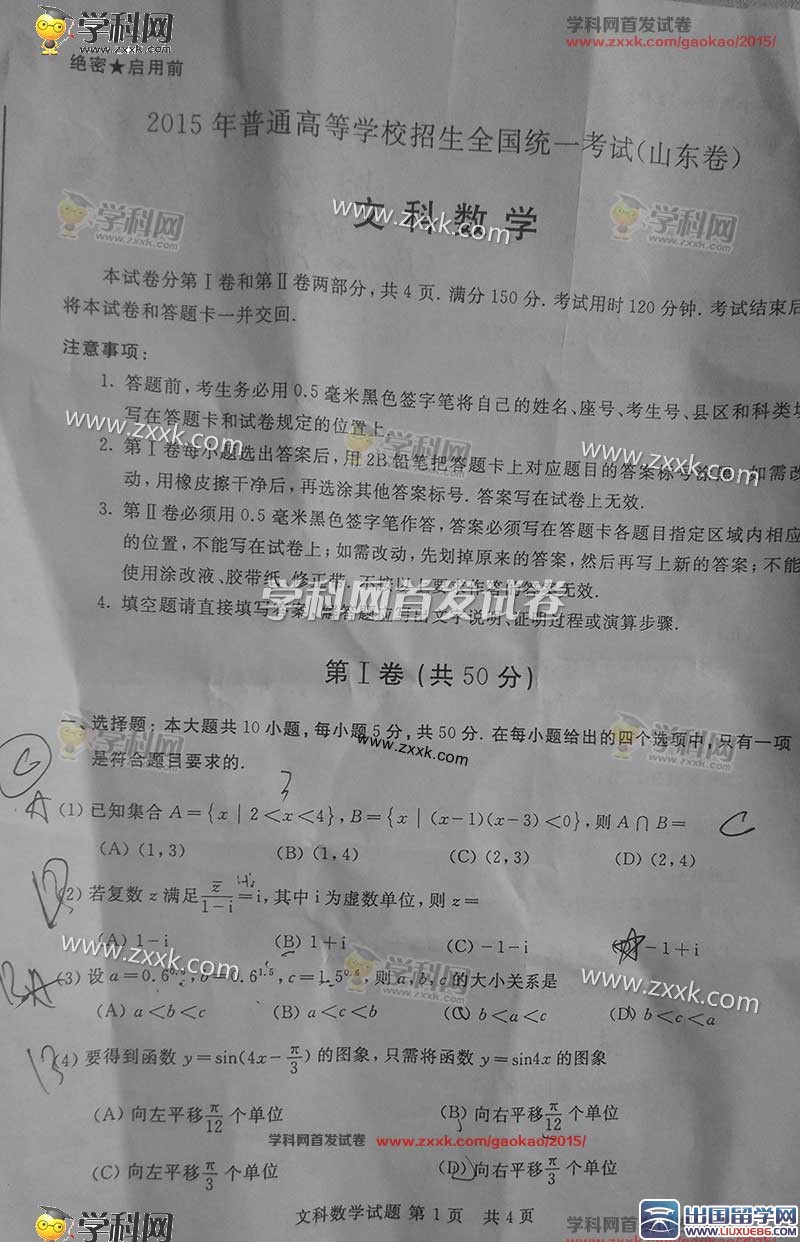 学科网
www.zxxk.com
学科网首发试卷
www.zxxk.com/gaokao/2015/
绝密★启用前
2015 年普通高等学校招生全国统一考试(山东卷)
学科网
www.zxxk.com
学科网
www.zxxk.com
文科数学
www.zxxk.com
本试卷分第Ⅰ卷和第Ⅱ卷两部分,共4页. 满分150分. 考试用时120分钟. 考试结束后
将本试卷和答题卡一并交回.
注意事项:
1. 答题前,考生务必用0.5毫米黑色签字笔将自己的姓名、座号、考生号、县区和科类填
写在答题卡和试卷规定的位置上.
www.zxxk.com
学科网
www.zxxk.com
2. 第Ⅰ卷每小题选出答案后,用2B铅笔把答题卡上对应题目的答案标号涂黑. 如需改
动,用橡皮擦干净后,再选涂其他答案标号. 答案写在试卷上无效.
3. 第Ⅱ卷必须用0.5毫米黑色签字笔作答,答案必须写在答题卡各题目指定区域内相应
的位置,不能写在试卷上;如需改动,先划掉原来的答案,然后再写上新的答案;不能
使用涂改液、胶带纸、修正带. 不按以上要求作答的答案无效.
学科网首发试卷
4. 填空题请直接填写答案,解答题应写出文字说明、证明过程或演算步骤.
第Ⅰ卷 (共50分)
一、选择题:本大题共10小题,每小题5分,共50分. 在每小题给出的四个选项中,只有一项
www.zxxk.com
是符合题目要求的.
学科网
www.zxxk.com
学科网
www.zxxk.com
3
A (1) 已知集合 A={x | 2<x<4},B={x | (x-1)(x-3)<0},则 A∩B= C
(A) (1,3) (B) (1,4) (C) (2,3) (D) (2,4)
(2) 若复数 z 满足 z̅/(1-i)=i,其中 i 为虚数单位,则 z=
(A) 1-i (B) 1+i (C) -1-i -1+i
www.zxxk.com
学科网
www.zxxk.com
www.zxxk.com
(3) 设 a=0.6^0.6,b=0.6^1.5,c=1.5^0.6,则 a,b,c 的大小关系是
(A) a<b<c (B) a<c<b (C) b<a<c (D) b<c<a
(4) 要得到函数 y=sin(4x-π/3) 的图象,只需将函数 y=sin4x 的图象
(A) 向左平移 π/12 个单位 (B) 向右平移 π/12 个单位
学科网首发试卷 www.zxxk.com/gaokao/2015/
(C) 向左平移 π/3 个单位 (D) 向右平移 π/3 个单位
文科数学试题 第1页 共4页
学科网
www.zxxk.com
学科网首发试卷
出国留学网
www.liuxue86.com